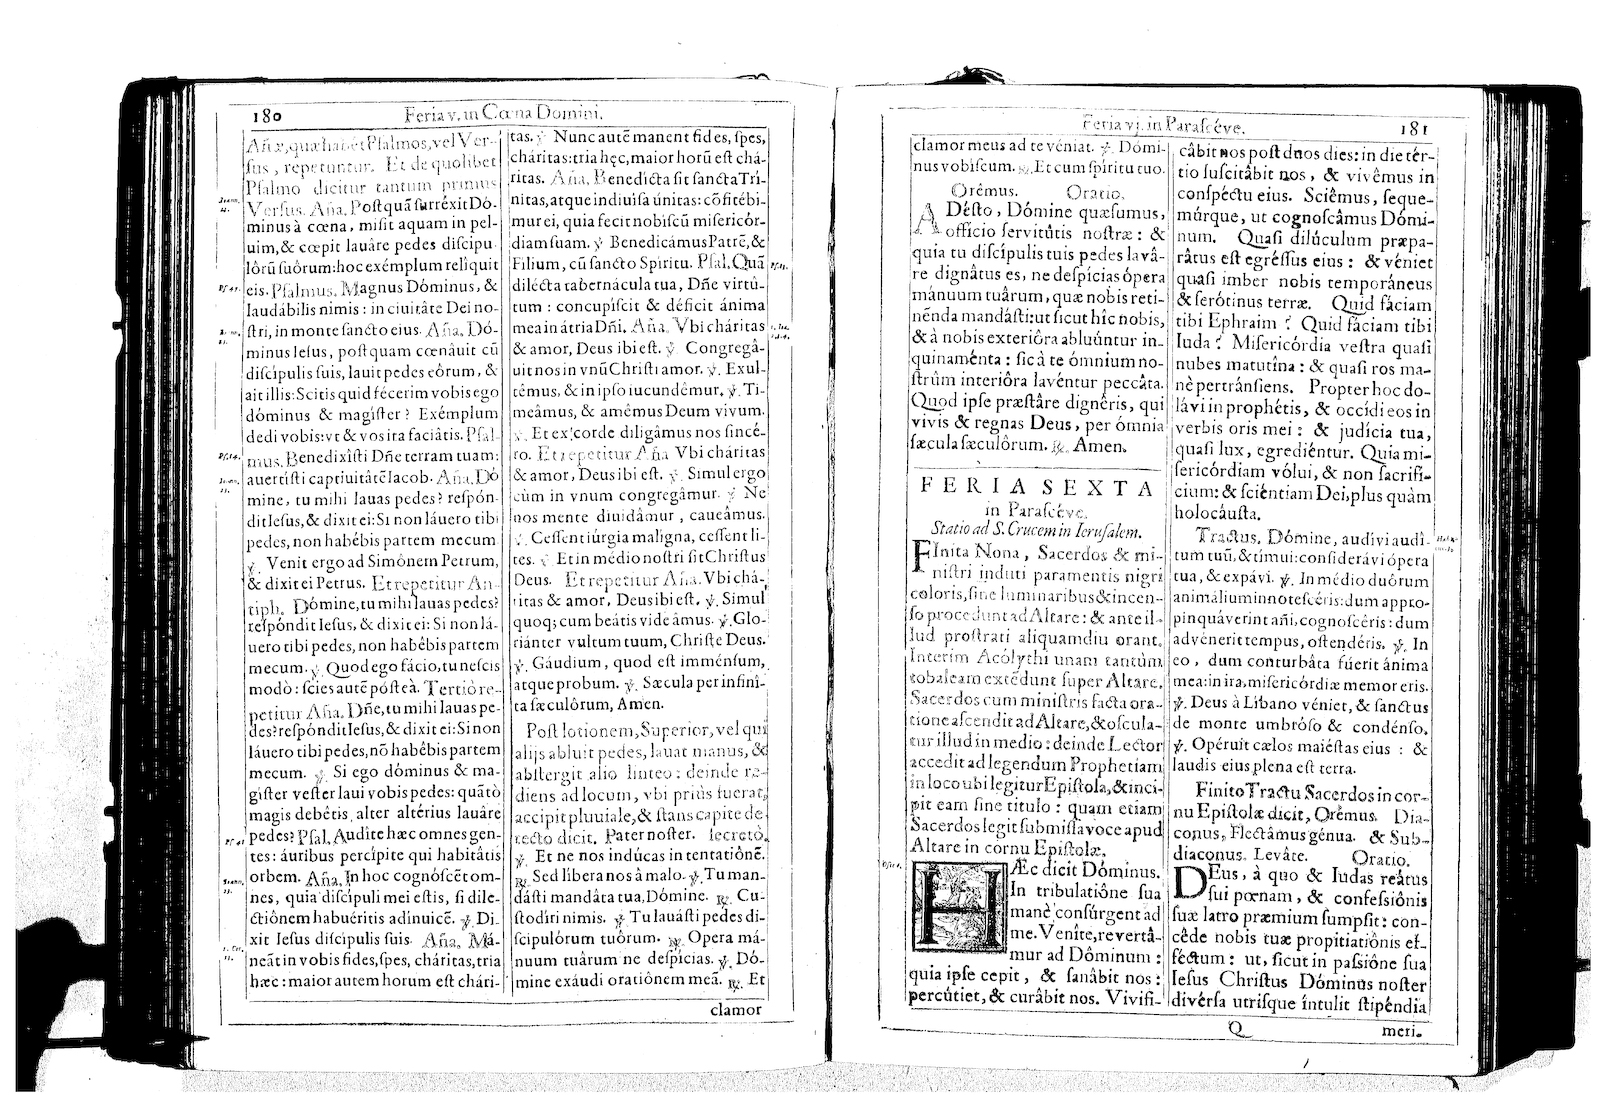 180
Feria v. in Cœna Domini.
Añæ, quæ habẽt Psalmos, vel Ver-
sus, repetuntur. Et de quolibet
Psalmo dicitur tantum primus
Versus. Aña. Postquã surréxit Dó-
minus à cœna, misit aquam in pel-
uim, & cœpit lauâre pedes discipu
lôrũ suôrum: hoc exémplum relîquit
eis. Psalmus. Magnus Dóminus, &
laudábilis nimis: in ciuitâte Dei no-
stri, in monte sancto eius. Aña. Dó-
minus Iesus, postquam cœnâuit cũ
discípulis suis, lauit pedes eôrum, &
ait illis: Scitis quid fécerim vobis ego
dóminus & magíster? Exémplum
dedi vobis: vt & vos ita faciâtis. Psal-
mus. Benedixîsti Dñe terram tuam:
auertîsti captiuitâtẽ Iacob. Aña. Dó
mine, tu mihi lauas pedes? respón-
dit Iesus, & dixit ei: Si non láuero tibi
pedes, non habébis partem mecum
℣. Venit ergo ad Simônem Petrum,
& dixit ei Petrus. Et repetitur An-
tiph. Dómine, tu mihi lauas pedes?
respóndit Iesus, & dixit ei: Si non lá-
uero tibi pedes, non habébis partem
mecum. ℣. Quod ego fácio, tu nescis
modò: scies autẽ pósteà. Tertiò re-
petitur Aña. Dñe, tu mihi lauas pe-
des? respóndit Iesus, & dixit ei: Si non
láuero tibi pedes, nõ habébis partem
mecum. ℣. Si ego dóminus & ma-
gíster vester laui vobis pedes: quãtò
magis debêtis alter altérius lauâre
pedes? Psal. Audîte hæc omnes gen-
tes: áuribus percípite qui habitâtis
orbem. Aña. In hoc cognóscẽt om-
nes, quia discípuli mei estis, si dile-
ctiônem habuéritis adínuicẽ. ℣. Di-
xit Iesus discípulis suis. Aña. Má-
neãt in vobis fides, spes, cháritas, tria
hæc: maior autem horum est chári-
tas. ℣ Nunc autẽ manent fides, spes,
cháritas: tria hęc, maior horũ est chá-
ritas. Aña. Benedícta sit sancta Trí-
nitas, atque indiuísa únitas: cõfitébi-
mur ei, quia fecit nobiscũ misericór-
diam suam. ℣ Benedicámus Patrẽ, &
Filium, cũ sancto Spiritu. Psal. Quã
dilécta tabernácula tua, Dñe virtû-
tum: concupíscit & déficit ánima
mea in átria Dñi. Aña. Vbi cháritas
& amor, Deus ibi est. ℣ Congregâ-
uit nos in vnũ Christi amor. ℣. Exul-
témus, & in ipso iucundêmur. ℣. Ti-
meâmus, & amémus Deum vivum.
℣. Et ex corde diligâmus nos sincé-
ro. Et repetitur Aña Vbi cháritas
& amor, Deus ibi est. ℣. Simul ergo
cùm in vnum congregâmur. ℣ Ne
nos mente diuidâmur, caueâmus.
℣. Cessent iúrgia maligna, cessent li-
tes. ℣. Et in médio nostri sit Christus
Deus. Et repetitur Aña. Vbi chá-
ritas & amor, Deus ibi est. ℣. Simul
quoq; cum beátis videâmus. ℣. Glo-
riánter vultum tuum, Christe Deus.
℣. Gáudium, quod est imménsum,
atque probum. ℣. Sæcula per infinî-
ta sæculôrum, Amen.
Post lotionem, Superior, vel qui
alijs abluit pedes, lauat manus, &
abstergit alio linteo: deinde re-
diens ad locum, vbi priùs fuerat,
accipit pluuiale, & stans capite de
tecto dicit. Pater noster. secretò.
℣. Et ne nos indúcas in tentatiônẽ.
℟. Sed líbera nos à malo. ℣. Tu man-
dásti mandâta tua, Dómine. ℟. Cu-
stodíri nimis. ℣. Tu lauásti pedes di-
scipulórum tuôrum. ℟. Opera má-
nuum tuârum ne despícias. ℣. Dó-
mine exáudi oratiônem meã. ℟. Et
clamor
Feria vj. in Parascéve.
181
clamor meus ad te véniat. ℣. Dómi-
nus vobíscum. ℟. Et cum spíritu tuo.
Orémus. Oratio.
ADésto, Dómine quæsumus,
officio servitûtis nostræ: &
quia tu discípulis tuis pedes lavâ-
re dignâtus es, ne despícias ópera
mánuum tuârum, quæ nobis reti-
nénda mandásti: ut sicut hîc nobis,
& à nobis exteriôra abluúntur in-
quinaménta: sic à te ómnium no-
strûm interiôra lavéntur peccâta.
Quod ipse præstâre dignêris, qui
vivis & regnas Deus, per ómnia
sæcula sæculôrum. ℟. Amen.
FERIA SEXTA
in Parascéve.
Statio ad S. Crucem in Ierusalem.
FInita Nona, Sacerdos & mi-
nistri induti paramentis nigri
coloris, sine luminaribus & incen-
so procedunt ad Altare: & ante il-
lud prostrati aliquamdiu orant.
Interim Acolythi unam tantùm
tobaleam extédunt super Altare.
Sacerdos cum ministris facta ora-
tione ascendit ad Altare, & oscula-
tur illud in medio: deinde Lector
accedit ad legendum Prophetiam
in loco ubi legitur Epistola, & inci-
pit eam sine titulo: quam etiam
Sacerdos legit submissa voce apud
Altare in cornu Epistolæ.
HÆc dicit Dóminus.
In tribulatiône sua
manè consúrgent ad
me. Venîte, revertâ-
mur ad Dôminum:
quia ipse cepit, & sanâbit nos:
percútiet, & curâbit nos. Vivifi-
câbit nos post duos dies: in die tér-
tio suscitâbit nos, & vivêmus in
conspéctu eius. Sciêmus, seque-
múrque, ut cognoscâmus Dómi-
num. Quasi dilúculum præpa-
râtus est egréssus eius: & véniet
quasi imber nobis temporâneus
& serótinus terræ. Quid fáciam
tibi Ephraim? Quid fáciam tibi
Iuda? Misericórdia vestra quasi
nubes matutîna: & quasi ros ma-
nè pertránsiens. Propter hoc do-
lávi in prophétis, & occídi eos in
verbis oris mei: & judícia tua,
quasi lux, egrediéntur. Quia mi-
sericórdiam vólui, & non sacrifi-
cium: & sciéntiam Dei, plus quàm
holocáusta.
Tractus. Dómine, audívi audî-
tum tuũ, & tímui: considerávi ópera
tua, & expávi. ℣. In médio duórum
animálium innotescéris: dum appro-
pinquáverint añi, cognoscéris: dum
advénerit tempus, ostendéris. ℣. In
eo, dum conturbâta fúerit ánima
mea: in ira, misericórdiæ memor eris.
℣. Deus à Líbano véniet, & sanctus
de monte umbróso & condénso.
℣. Opéruit cælos maiéstas eius: &
laudis eius plena est terra.
Finito Tractu Sacerdos in cor-
nu Epistolæ dicit, Orémus. Dia-
conus, Flectâmus génua. & Sub-
diaconus. Levâte. Oratio.
DEus, à quo & Iudas reâtus
sui pœnam, & confessiônis
suæ latro præmium sumpsit: con-
cêde nobis tuæ propitiatiônis ef-
féctum: ut, sicut in passiône sua
Iesus Christus Dóminus noster
divérsa utrísque íntulit stipéndia
Q
meri-